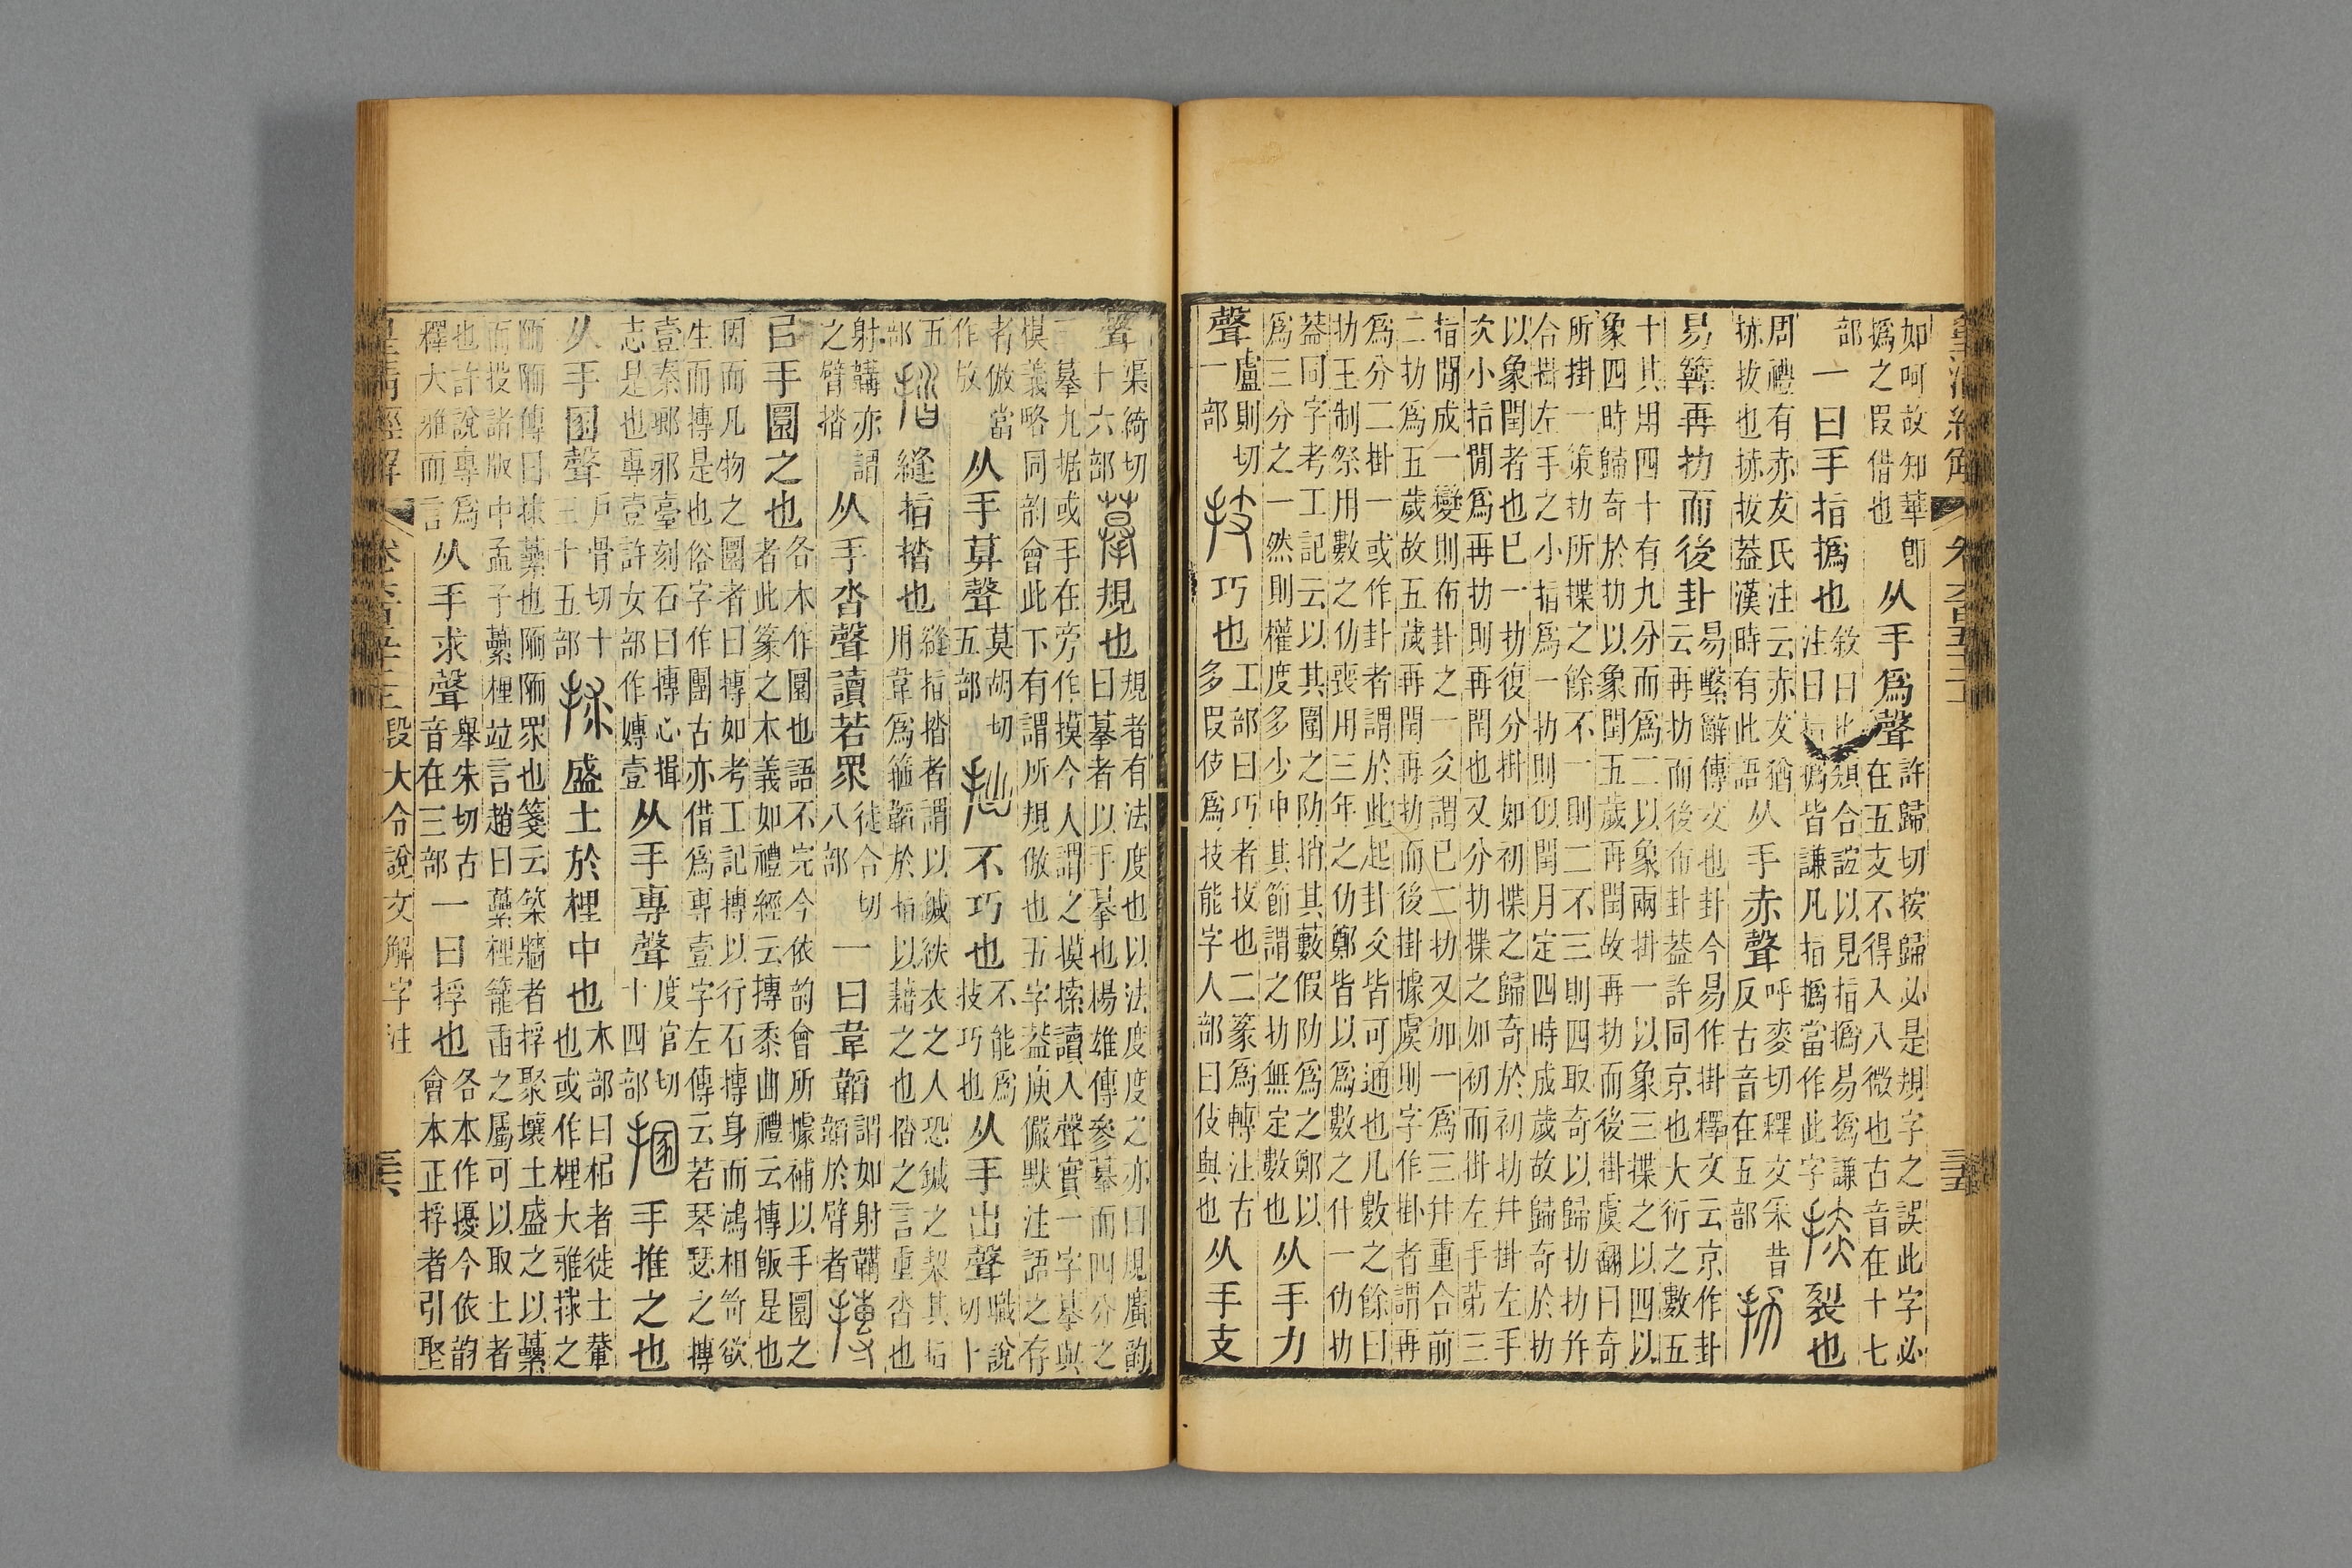 皇清經解 卷六百五十二 三五
如呵故知華卽
撝之叚借也
从手爲聲
許歸切按歸必是規字之誤此字必
在五支不得入八微也古音在十七
部
一曰手指撝也
敘曰比類合誼以見指撝易撝謙
注曰指撝皆謙凡指撝當作此字
捇
裂也
周禮有赤友氏注云赤友猶
捇拔也捇拔葢漢時有此語
从手赤聲
呼麥切釋文采昔
反古音在五部
扐
易簭再扐而後卦
易繫辭傳文也卦今易作掛釋文云京作卦
云再扐而後布卦葢許同京也大衍之數五
十其用四十有九分而爲二以象兩掛一以象三揲之以四以
象四時歸奇於扐以象閏五歲再閏故再扐而後掛虞翻曰奇
所掛一策扐所揲之餘不一則二不三則四取奇以歸扐扐幷
合掛左手之小指爲一扐則㠯閏月定四時成歲故歸奇於扐
以象閏者也已一扐復分掛如初揲之歸奇於初扐幷掛左手
次小指閒爲再扐則再閏也又分扐揲之如初而掛左手第三
指閒成一變則布卦之一爻謂已二扐又加一爲三幷重合前
二扐爲五歲故五歲再閏再扐而後掛據虞則字作掛者謂再
爲分二掛一或作卦者謂於此起卦爻皆可通也凡數之餘曰
扐王制祭用數之仂喪用三年之仂鄭皆以爲數之什一仂扐
葢同字考工記云以其圍之阞捎其藪假阞爲之鄭以
爲三分之一然則權度多少中其節謂之扐無定數也
从手力
聲
盧則切
一部
技
巧也
工部曰巧者技也二篆爲轉注古
多叚伎爲技能字人部曰伎與也
从手支
聲
渠綺切
十六部
摹
規也
規者有法度也以法度度之亦曰規廣韵
曰摹者以手摹也楊雄傳參摹而四分之
一摹九据或手在旁作摸今人謂之摸㩱讀入聲實一字摹與
模義略同韵會此下有謂所規倣也五字葢庾儼默注語之存
者倣當
作放
从手莫聲
莫胡切
五部
拙
不巧也
不能爲
技巧也
从手出聲
職說
切十
五
部
㨹
縫指㨹也
縫指㨹者謂以鍼紩衣之人恐鍼之契其指
用韋爲箍韜於指以藉之也㨹之言重沓也
射韝亦謂
之臂㨹
从手沓聲讀若眾
徒合切
八部
一曰韋韜
謂如射韝
韜於臂者
摶
㠯手圜之也
各本作圜也語不完今依韵會所據補以手圜之
者此篆之本義如禮經云摶黍曲禮云摶飯是也
因而凡物之圜者曰摶如考工記摶以行石摶身而鴻相笴欲
生而摶是也俗字作團古亦借爲專壹字左傳云若琴瑟之摶
壹秦瑯邪臺刻石曰摶心揖
志是也專壹許女部作嫥壹
从手專聲
度官切
十四部
手推之也
从手圂聲
戶骨切十
三十五部
捄
盛土於梩中也
木部曰梠者徙土輂
也或作梩大雅捄之
陾陾傳曰捄虆也陾陾眾也箋云築牆者捊聚壤土盛之以虆
而投諸版中孟子虆梩竝言趙曰虆梩籠臿之屬可以取土者
也許說專爲
釋大雅而言
从手求聲
舉朱切古
音在三部
一曰捊也
各本作擾今依韵
會本正捊者引堅
皇清經解 卷六百五十二 段大令說文解字注 三六